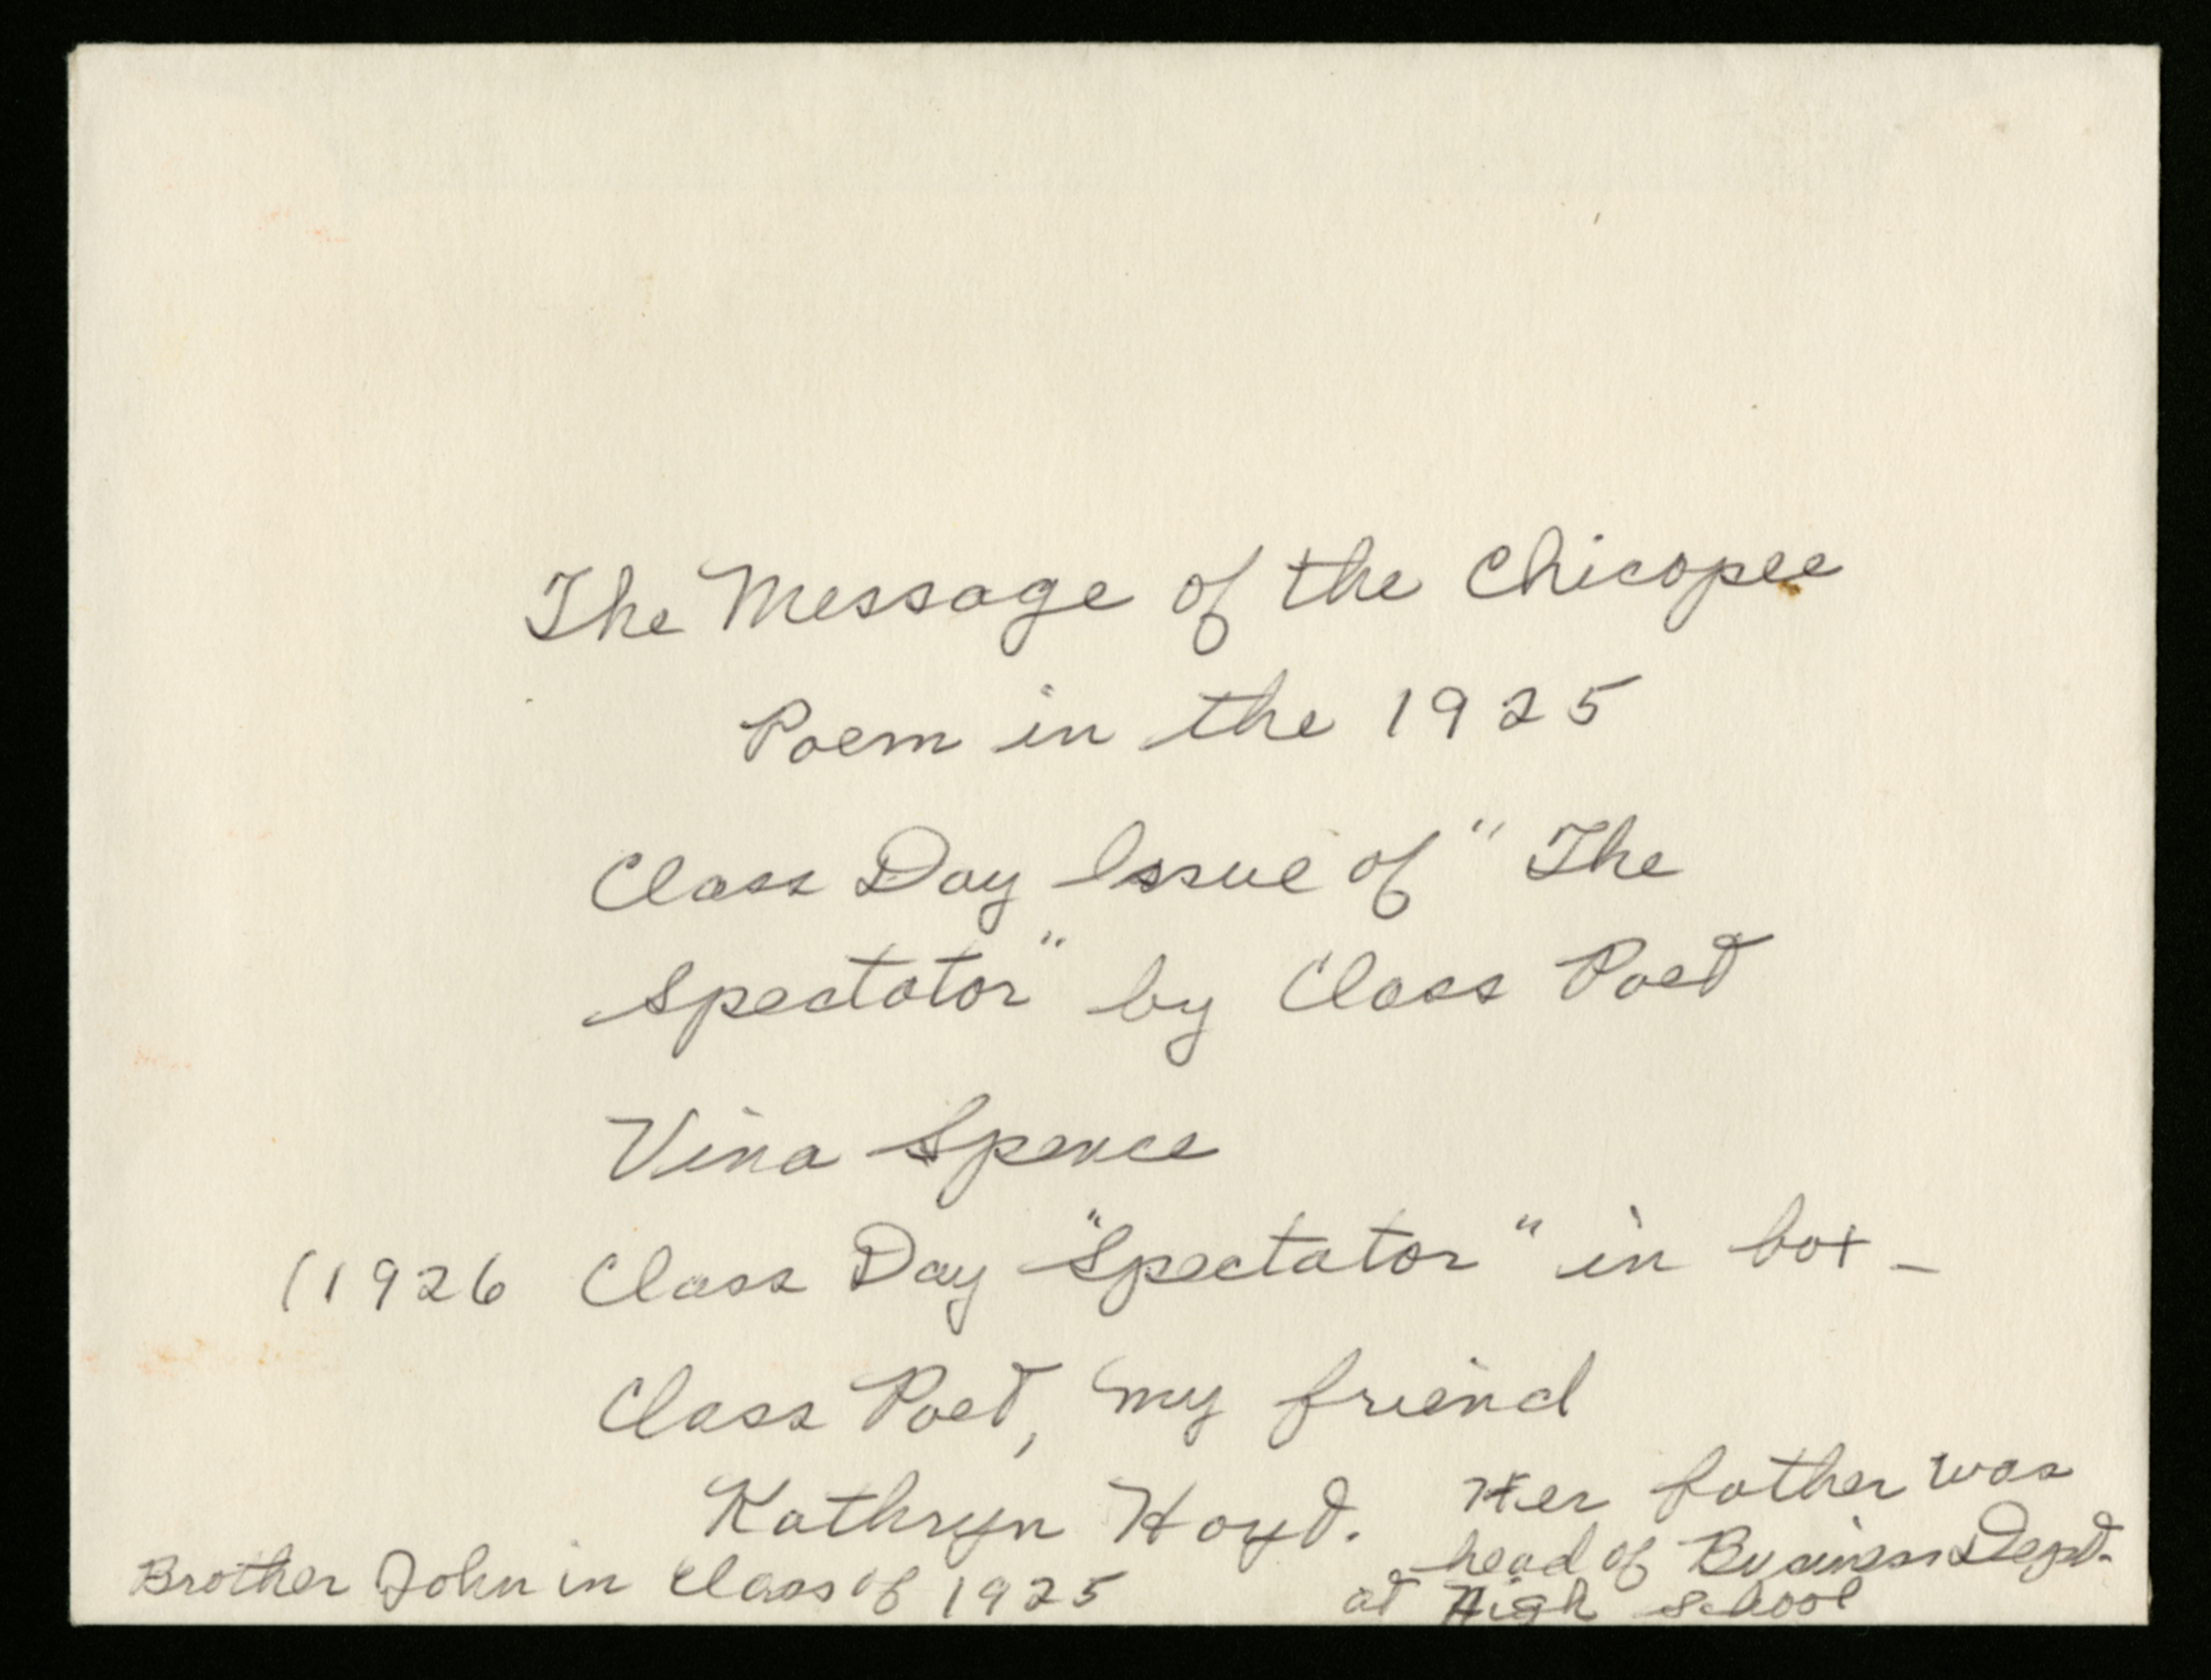 The Message of the Chicopee
Poem in the 1925
Class Day Issue of "The
Spectator" by Class Poet
Vina Spence
(1926 Class Day "Spectator" in box -
Class Poet, my friend
Kathryn Hoyt.
Her father was
head of Business Dept.
at High School
Brother John in Class of 1925